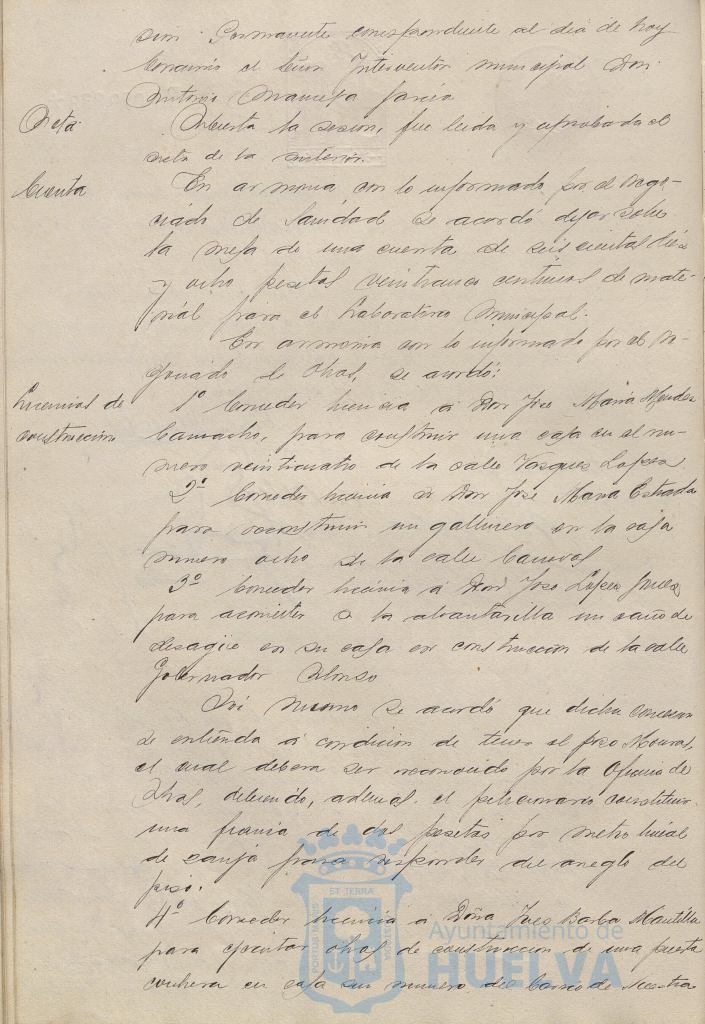 sion Permanente correspondiente al dia de hoy
concurrió el Señor Interventor municipal Don
Antonio García
Acta. Abierta la sesion, fue leida y aprobada el
acta de la anterior.
Cuenta En armonia con lo informado por el Nego-
ciado de Sanidad se acordó dejar sobre
la mesa de una cuenta de seiscientas diez
y ocho pesetas veinticinco centimos de mate-
rial para el Laboratorio Municipal.
En armonia con lo informado por el Ne-
gociado de Obras, se acordó:
Licencias de 1º Conceder licencia á Don Jose Maria Mendez
construccion Camacho, para construir una casa en el nu-
mero veinticuatro de la calle Vazquez Lopez.
2º Conceder licencia á Don José Maria Estrada
para reconstruir un gallinero en la casa
numero ocho de la calle Canovas
3º Conceder licencia á Don Jose Lopez
para acometer a la alcantarilla un caño de
desagüe en su casa en construccion de la calle
Gobernador Alonso
Asi mismo se acordó que dicha concesion
se entienda á condicion de tener el pozo Mouras,
el cual deberá ser reconocido por la Oficina de
Obras, debiendo, ademas, el peticionario constituir
una fianza de dos pesetas por metro lineal
de zanja para responder del arreglo del
piso.
4º Conceder licencia á Doña Ines Barba Mantilla
para ejecutar obras de construccion de una puerta
cochera en casa sin numero del barrio de Nuestra
ST TERRÆ
PORTUS MARIS
CUSTODIA
Ayuntamiento de
HUELVA